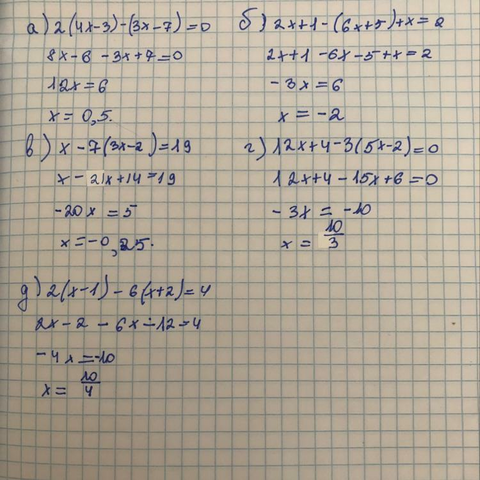 а) 2(4x-3)-(3x-7)=0
8x-6-3x+7=0
12x=6
x=0,5.
б) 2x+1-(6x+5)+x=2
2x+1-6x-5+x=2
-3x=6
x=-2
в) x-7(3x-2)=19
x-21x+14=19
-20x=5
x=-0,25.
г) 12x+4-3(5x-2)=0
12x+4-15x+6=0
-3x=-10
x=10/3
д) 2(x-1)-6(x+2)=4
2x-2-6x-12=4
-4x=-10
x=10/4